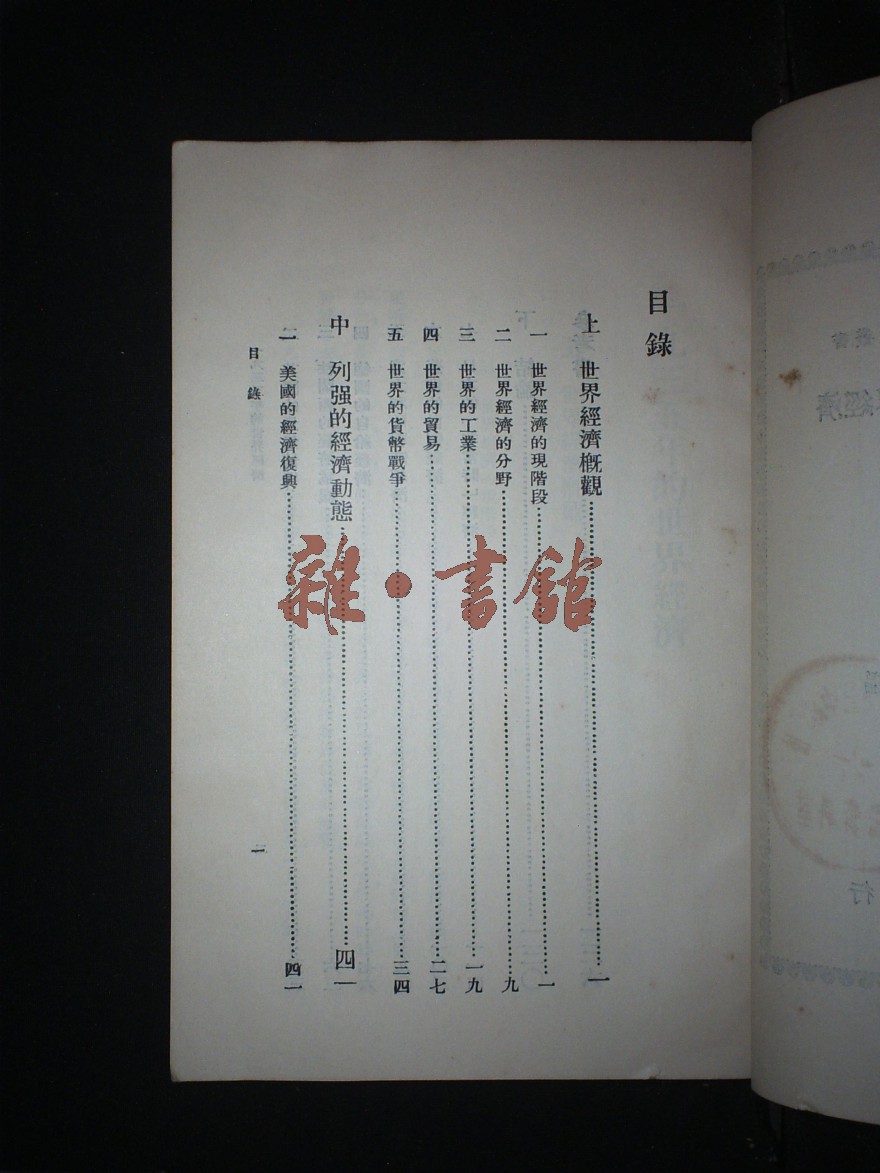 目錄
上 世界經濟概觀……一
一 世界經濟的現階段……一
二 世界經濟的分野……九
三 世界的工業……一九
四 世界的貿易……二七
五 世界的貨幣戰爭……三四
中 列强的經濟動態……四一
一 美國的經濟復興……四一
目錄
一
雜・書館